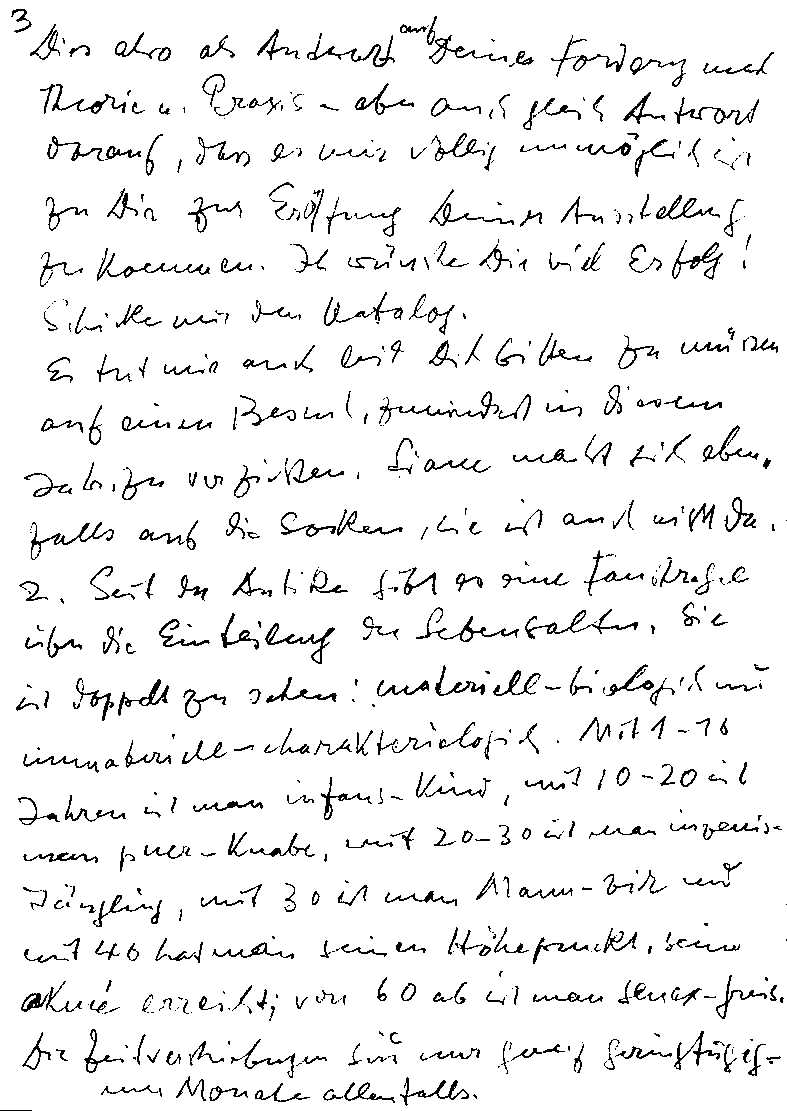 3
Dies also als Antwort auf Deine Forderung nach
Theorie u. Praxis – aber auch gleich Antwort
darauf, dass es mir völlig unmöglich ist
zu Dir zur Eröffung Deiner Ausstellung
zu kommen. Ich wünsche Dir viel Erfolg!
Schicke mir den Katalog.
Es tut mir auch leid Dich bitten zu müssen
auf einen Besuch, zumindest in diesem
Jahr, zu verzichten. Liane macht sich eben-
falls auf die Socken, sie ist auch nicht da.
2. Seit der Antike gibt es eine Faustregel
über die Einteilung der Lebensalter. Sie
ist doppelt zu sehen: materiell-biologisch und
immateriell-charakterologisch. Mit 1-10
Jahren ist man infans-Kind, mit 10-20 ist
man puer-Knabe, mit 20-30 ist man
Jüngling, mit 30 ist man Mann-vir und
mit 40 hat man seinen Höhepunkt, seine
akmé erreicht; von 60 ab ist man senex-Greis.
Die Zeitverschiebungen sind nur geringfügig-
um Monate allenfalls.